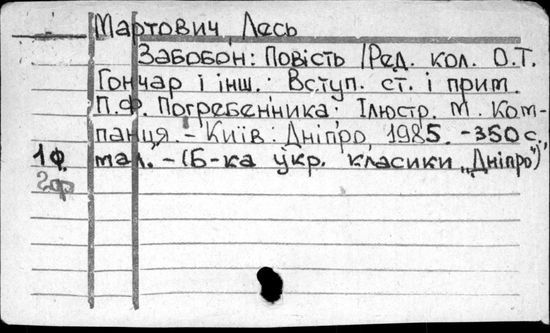 Мартович, Лесь
Забобон: Повість /Ред. кол. О.Т.
Гончар і інш.: Вступ. ст. і прим.
П.Ф. Погребенника: Ілюстр. М. Ком-
панця. - Київ: Дніпро, 1985. -350 с.,
1ф. мал. - (Б-ка укр. класики „Дніпро")